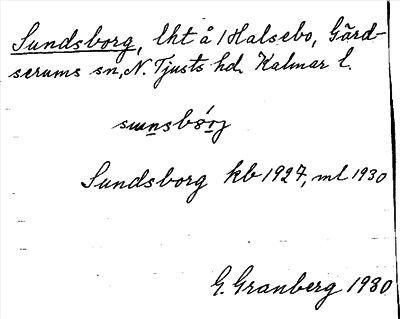 Sundsborg, lht å 1 Halsebo, Gärd-
serums sn, N. Tjusts hd. Kalmar l.
Sundsborg kb 1927, ml 1930
G. Granberg 1930